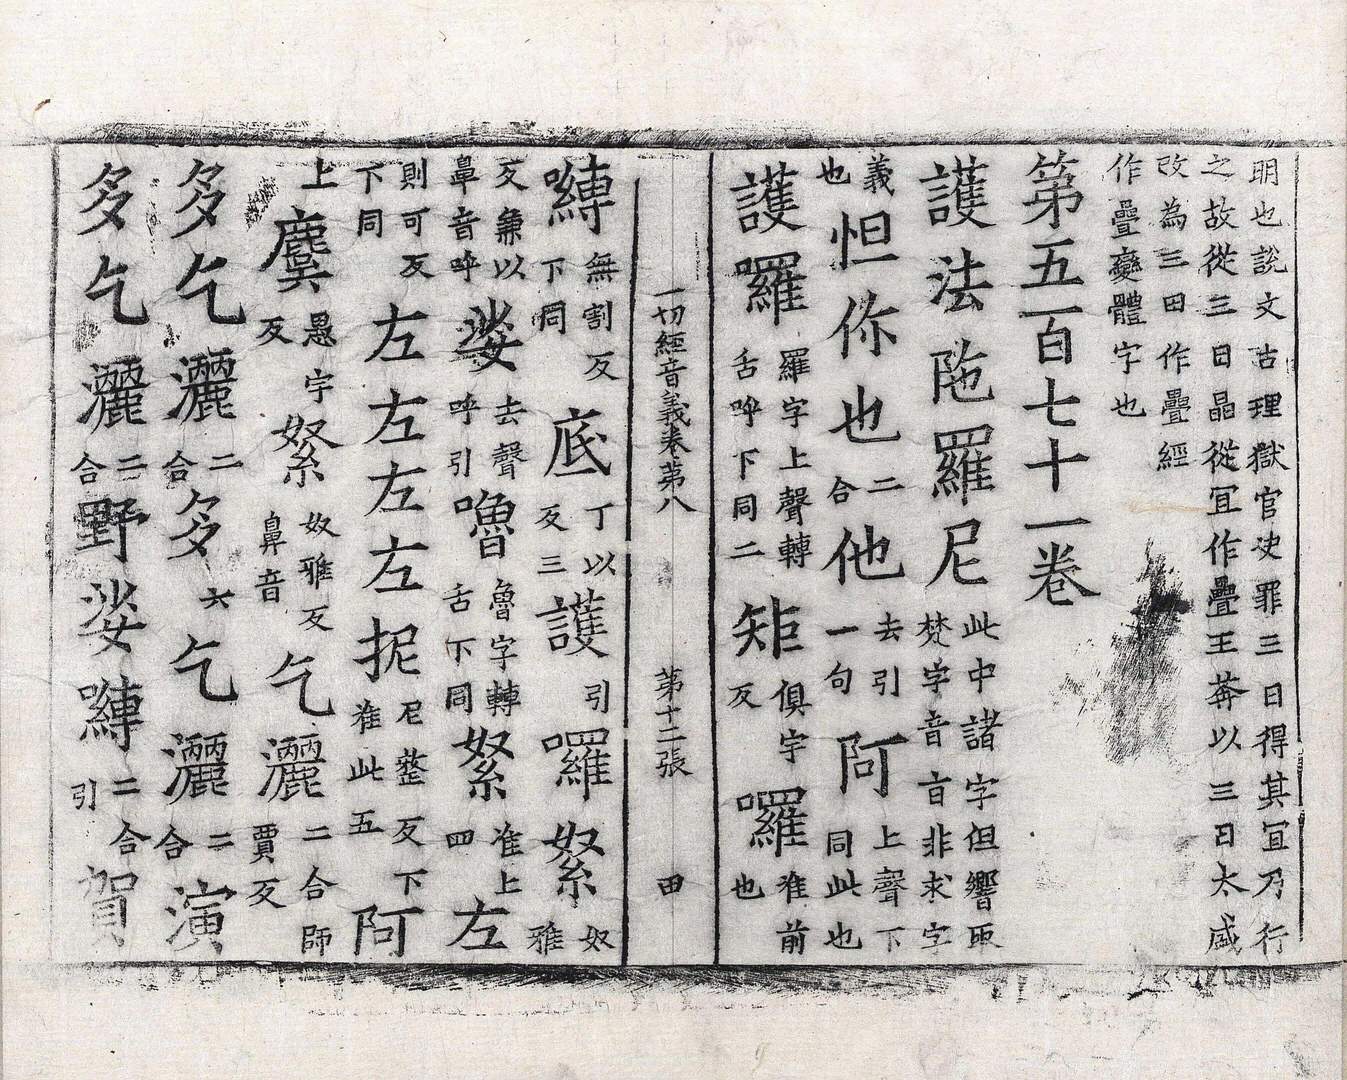 明也說文古理獄官决罪三日得其冝乃行
之故從三日晶從冝作疊王莽以三日太盛
改為三田作疊經
作疊變體字也
第五百七十一卷
護法陁羅尼此中諸字但響取
梵字音旨非求字
義
也怛你也二
合他去引
一句阿上聲下
同此也
護囉羅字上聲轉
舌呼下同二矩俱字
反囉准前
也
一切經音義卷第八 第十二張 田
嚩無割反
下同底丁以
反三護引囉怒奴
雅
反兼以
鼻音呼娑去聲
呼引嚕魯字轉
舌下同怒准上
四左
則可反
下同左左左左抳尼整反下
准此五阿
上麌愚字
反怒奴雅反
鼻音乞灑二合師
賈反
多乞灑二
合多六乞灑二
合演
多乞灑二
合野娑嚩二合
引賀